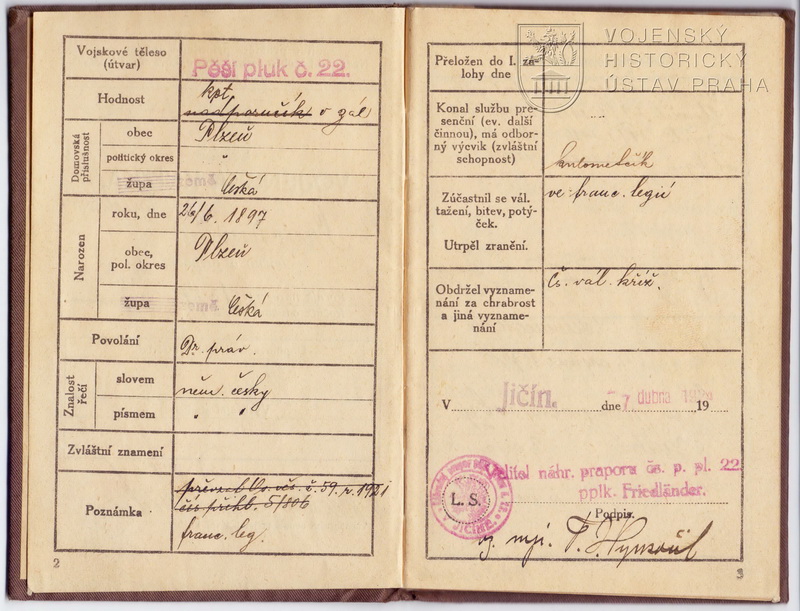 Vojskové těleso
(útvar)
Pěší pluk č. 22.
Hodnost
kpt.
nadporučík v zál
Domovská
příslušnost
obec
Plzeň
politický okres
"
župa
země
česká
Narozen
roku, dne
26/6. 1897
obec,
pol. okres
Plzeň
župa
země
česká
Povolání
Dr. práv.
Znalost
řečí
slovem
něm. česky
písmem
" "
Zvláštní znamení
Poznámka
č. 59. r. 1921
franc. leg.
2
VOJENSKÝ
HISTORICKÝ
ÚSTAV PRAHA
Přeložen do I. zá-
lohy dne
Konal službu pre-
senční (ev. další
činnou), má odbor-
ný výcvik (zvláštní
schopnost)
kulometčík
Zúčastnil se vál.
tažení, bitev, potý-
ček.
Utrpěl zranění.
ve franc. legii
Obdržel vyzname-
nání za chrabrost
a jiná vyzname-
nání
Čs. vál. kříž.
V Jičín. dne 7 dubna 19
Velitel náhr. praporu čs. p. pl. 22
pplk. Friedländer.
L. S.
JIČÍNĚ
Podpis.
3